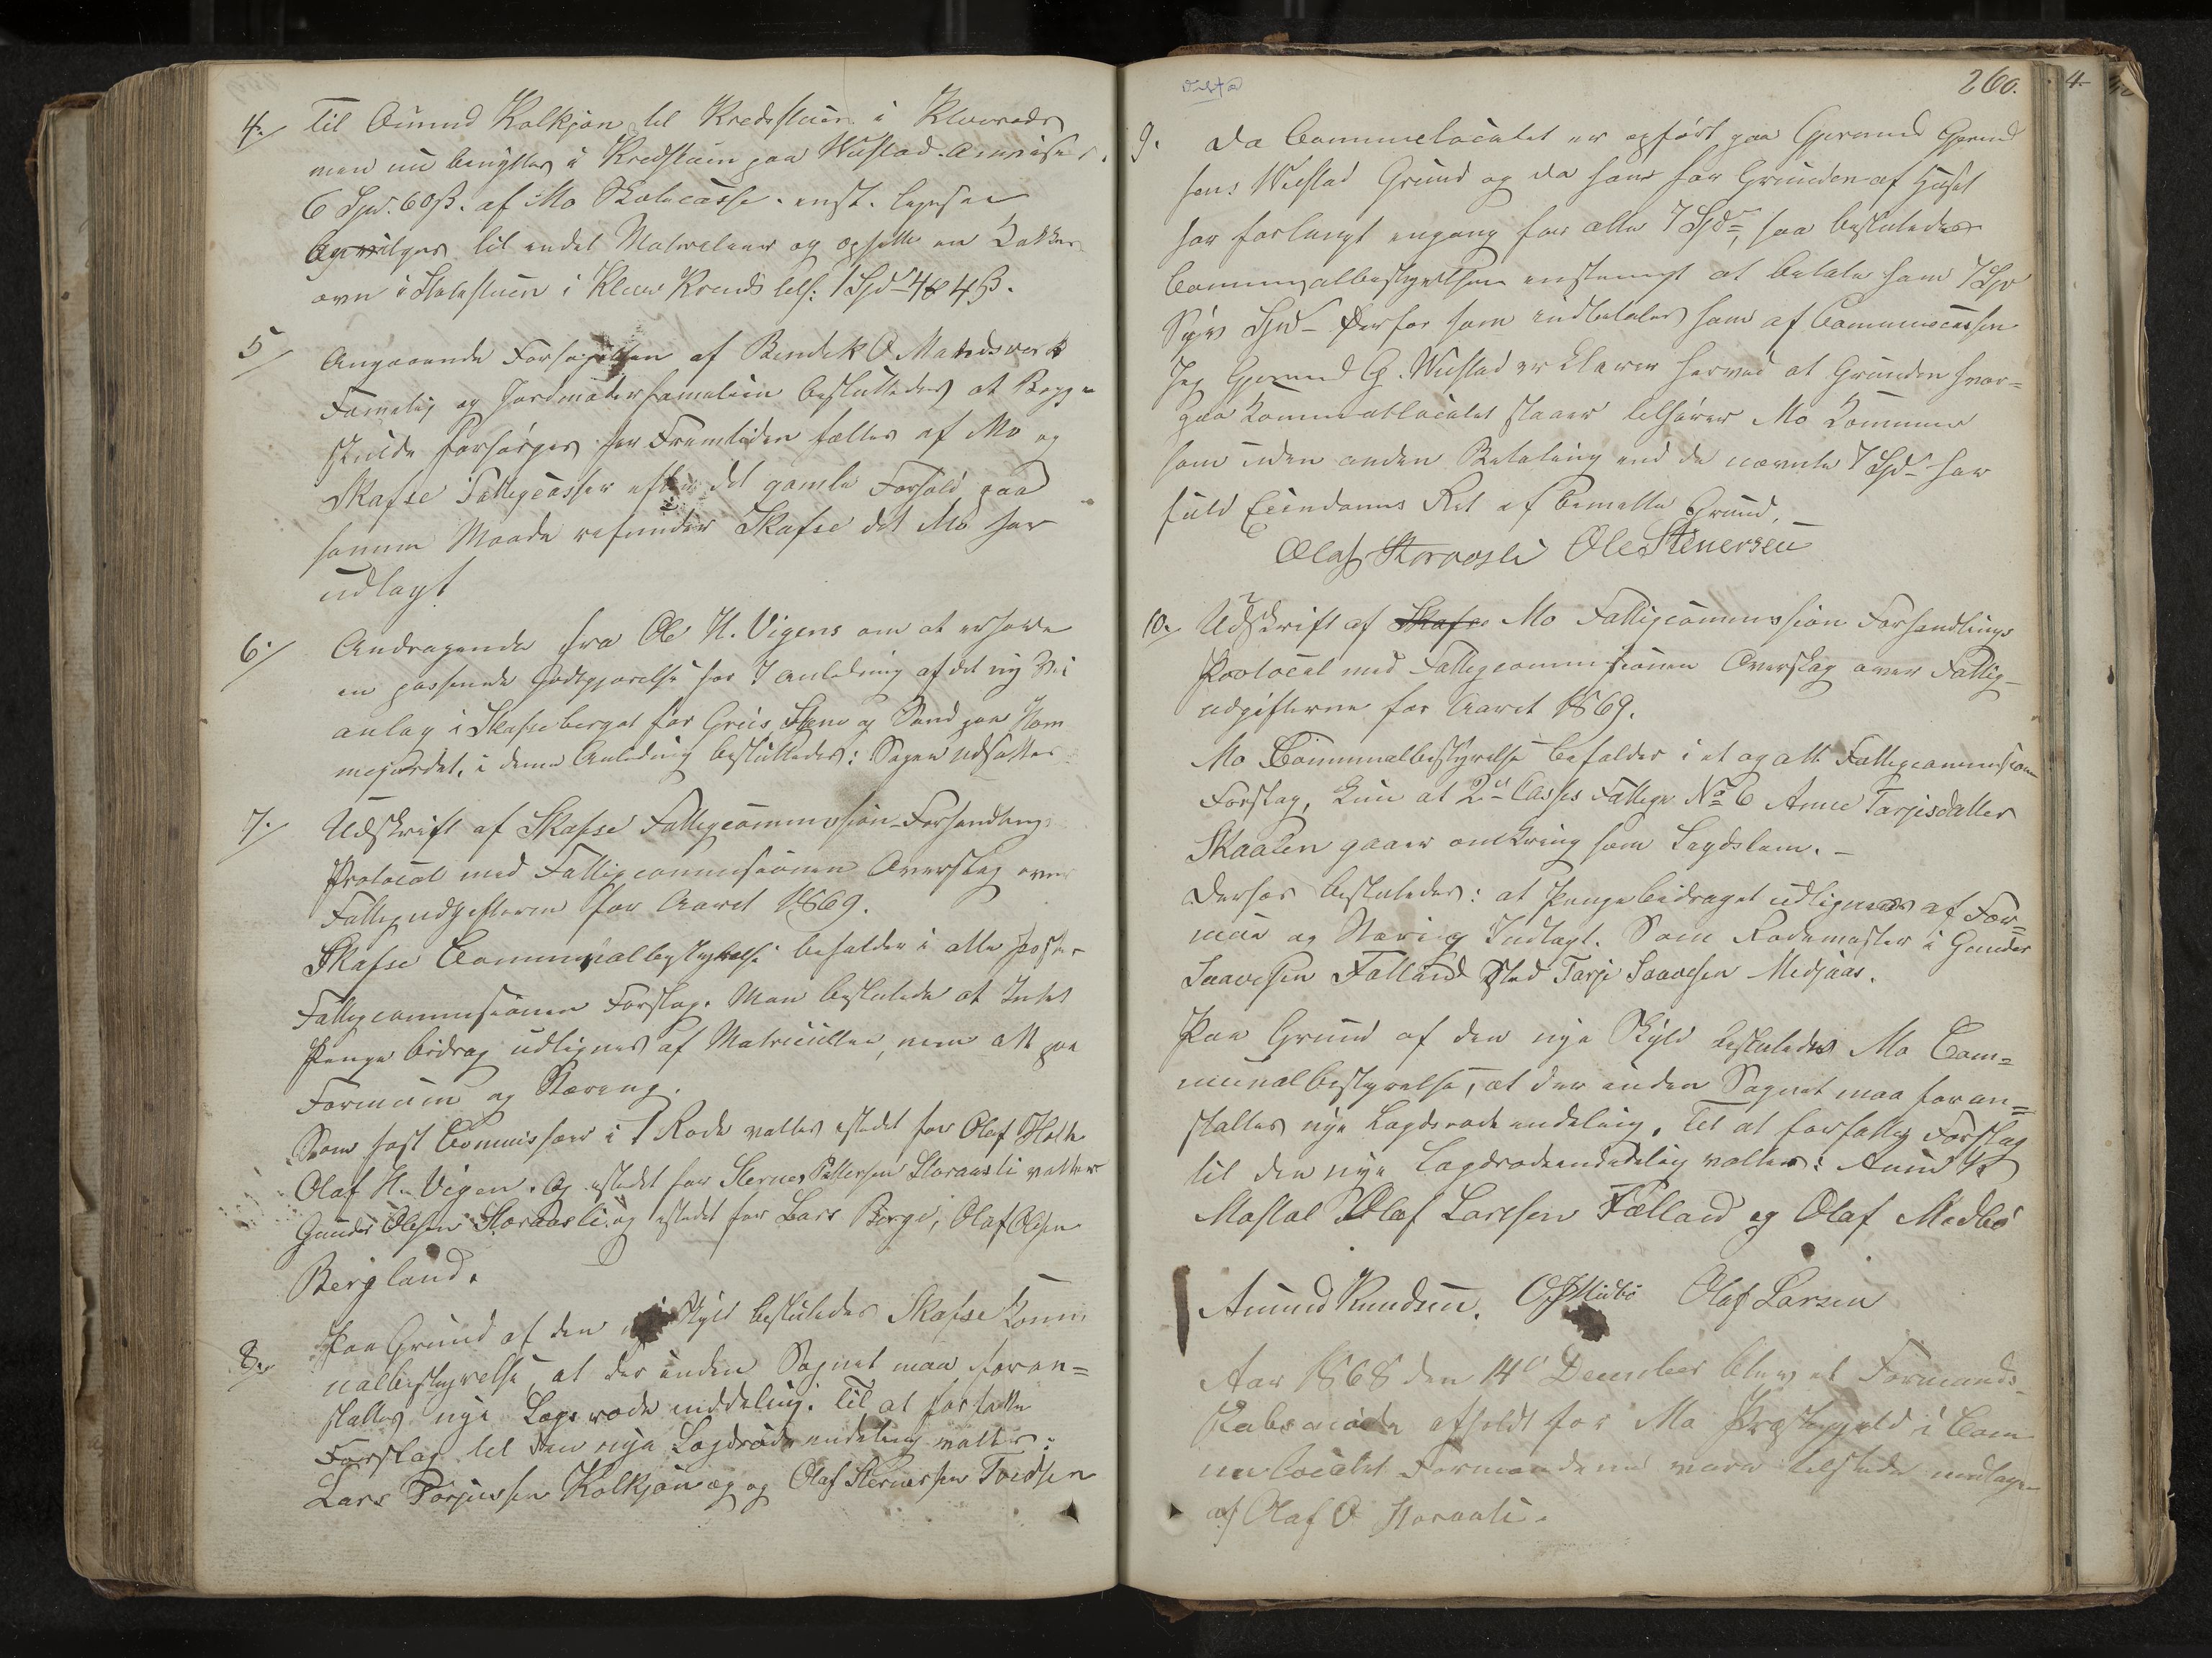 4. Til Aumund Kolkjøn til Kredsstuen i Kleivrode
men nu benyttes i Kredsstuen paa Wistad anvises
6 Spd. 60 ß. af Mo Skolecasse
til endel Materialer og opsætte en Kakkel
ovn i Skolestuen i Kleiv Kreds 1 Spd 48 ß.
5 Angaaende Forsørgelsen af Bendik O Mandsverk
Famelie og Jordmoderfamelien besluttedes at Begge
skulde forsørges for Fremtiden fælles af Mo og
Skafse Fattigcasser efter det gamle Forhold paa
samme Maade refunder Skafse det Mo har
udlagt
6. Andragende fra Ole H. Vigens om at erholde
en passende Godtgjørelse for I anledning af det ny Vei
anlæg i Skafsebergat for Gruis, Stene og Sand paa
i denne Anledning besluttedes: Sagen udsættes
7. Udskrift af Skafse Fattigcommission Forhandlings
Protocol med Fattigcommisionen Overslag over
Fattigudgifterne for Aaret 1869.
Skafse Communalbestyrelse befalder i alle Poster
Fattigcommisionen Forslag. Man besluttede at Intet
Penge bidrag udlignes af Matriculen, men alt paa
Formuen og Næring.
Som Commissær i 1 Rode valtes istedet for Olaf Holte
Olaf H. Vigen. Og istedet for Sterner Pettersen Storaasli valtes
Gunder Olsen Storaasli og istedet for Lars Berge, Olaf Olsen
Bergland.
8. Paa Grund af den Skyld besluttedes Skafse Komm
nalbestyrelse, at der inden Sognet maa foran=
staltes nye Lægsrode inddeling. Til at forfatte
Forslag til den nye Lægdrode indeling valtes:
Lars Torjussen Kolkjøn og og Olaf Sternersen Tveitsen
260.
9. Da Communelocalet er opført paa Gjermund Gjermund
sens Wistad Grund og da han for Grunden af Huset
har forlangt engang for alle 7 Spd, saa besluttedes
Communalbestyrelsen enstemigt at betale ham 7 Spd
Syv Spd derfor som indbetales ham af Communecassen
Jeg Gjermund G. Wistad erklærer herved at Grunden hvor=
paa Kommunelocalet staaer tilhører Mo Kommune
som uden anden Betaling end de nævnte 7 Spd har
fuld Eiendoms Ret af bemelte Grund.
Olaf Storaasli Ole Stenersen
10. Udskrift af Skafse Mo Fattigcommission Forhandlings
Protocol med Fattigcommisionen Overslag over Fattig-
udgifterne for Aaret 1869.
Mo Communalbestyrelse befalder i et og alt Fattigcommision
Forslag, kun at 2den Classes Fattige No 6 Anne Tarjisdatter
Skaalen gaaer omkring som Lægdslem. -
Derfor besluttedes: at Pengebidraget udlignes af For=
mue og Næring Indtægt. Som Rodemester i Gunder
Saavesen Fælland Sted Tarje Saavesen Midjaas.
Paa Grund af den nye Skyld besluttedes Mo Com=
munalbestyrelse, at der inden Sognet maa foran=
staltes nye Lægdsrode inddeling. Til at forfatte Forslag
til den nye Lægdrodeinddeling valtes: Amund K
Mostøl Olaf Larsen Fælland og Olaf Medbø
Amund Knudsen. O Midbø Olaf Larsen
Aar 1868 den 14de December blev et Formands-
skabsmøde afholdt for Mo Præstegjeld i Com
nelocalet Formændene vare tilstede undtagen
af Olaf O Storaasli.